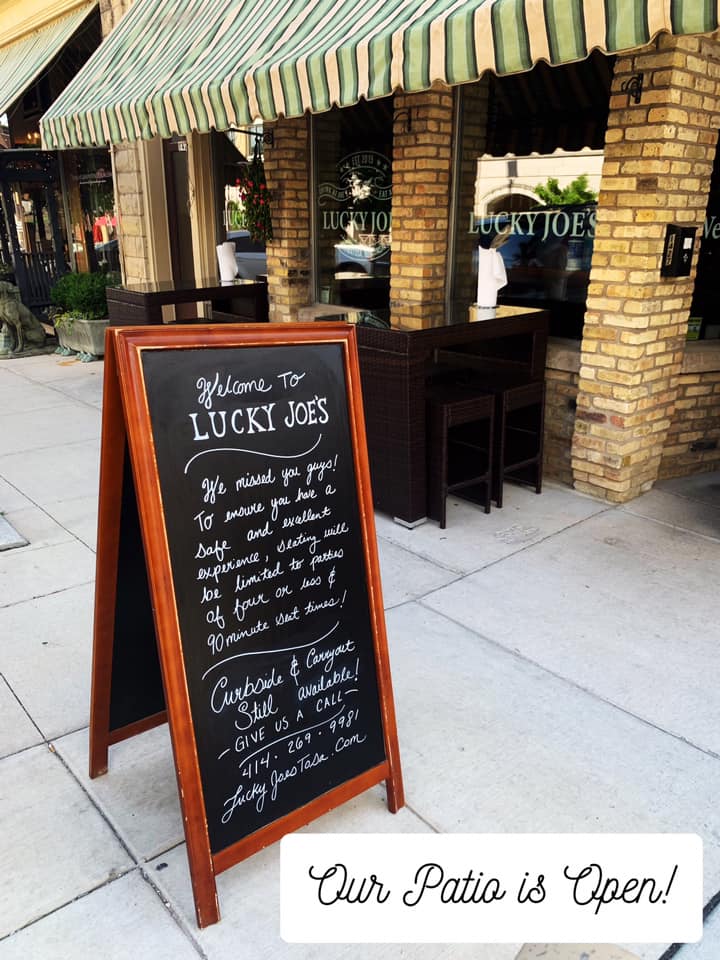 EST 2015
LUCKY JOE
LUCKY JOE'S
We
Welcome To
LUCKY JOE'S
We missed you guys!
To ensure you have a
safe and excellent
experience, seating will
be limited to parties
of four or less &
90 minute seat times!
Curbside & Carryout
Still available!
- GIVE US A CALL -
414 · 269 · 9981
Lucky JoesTosa.Com
Our Patio is Open!